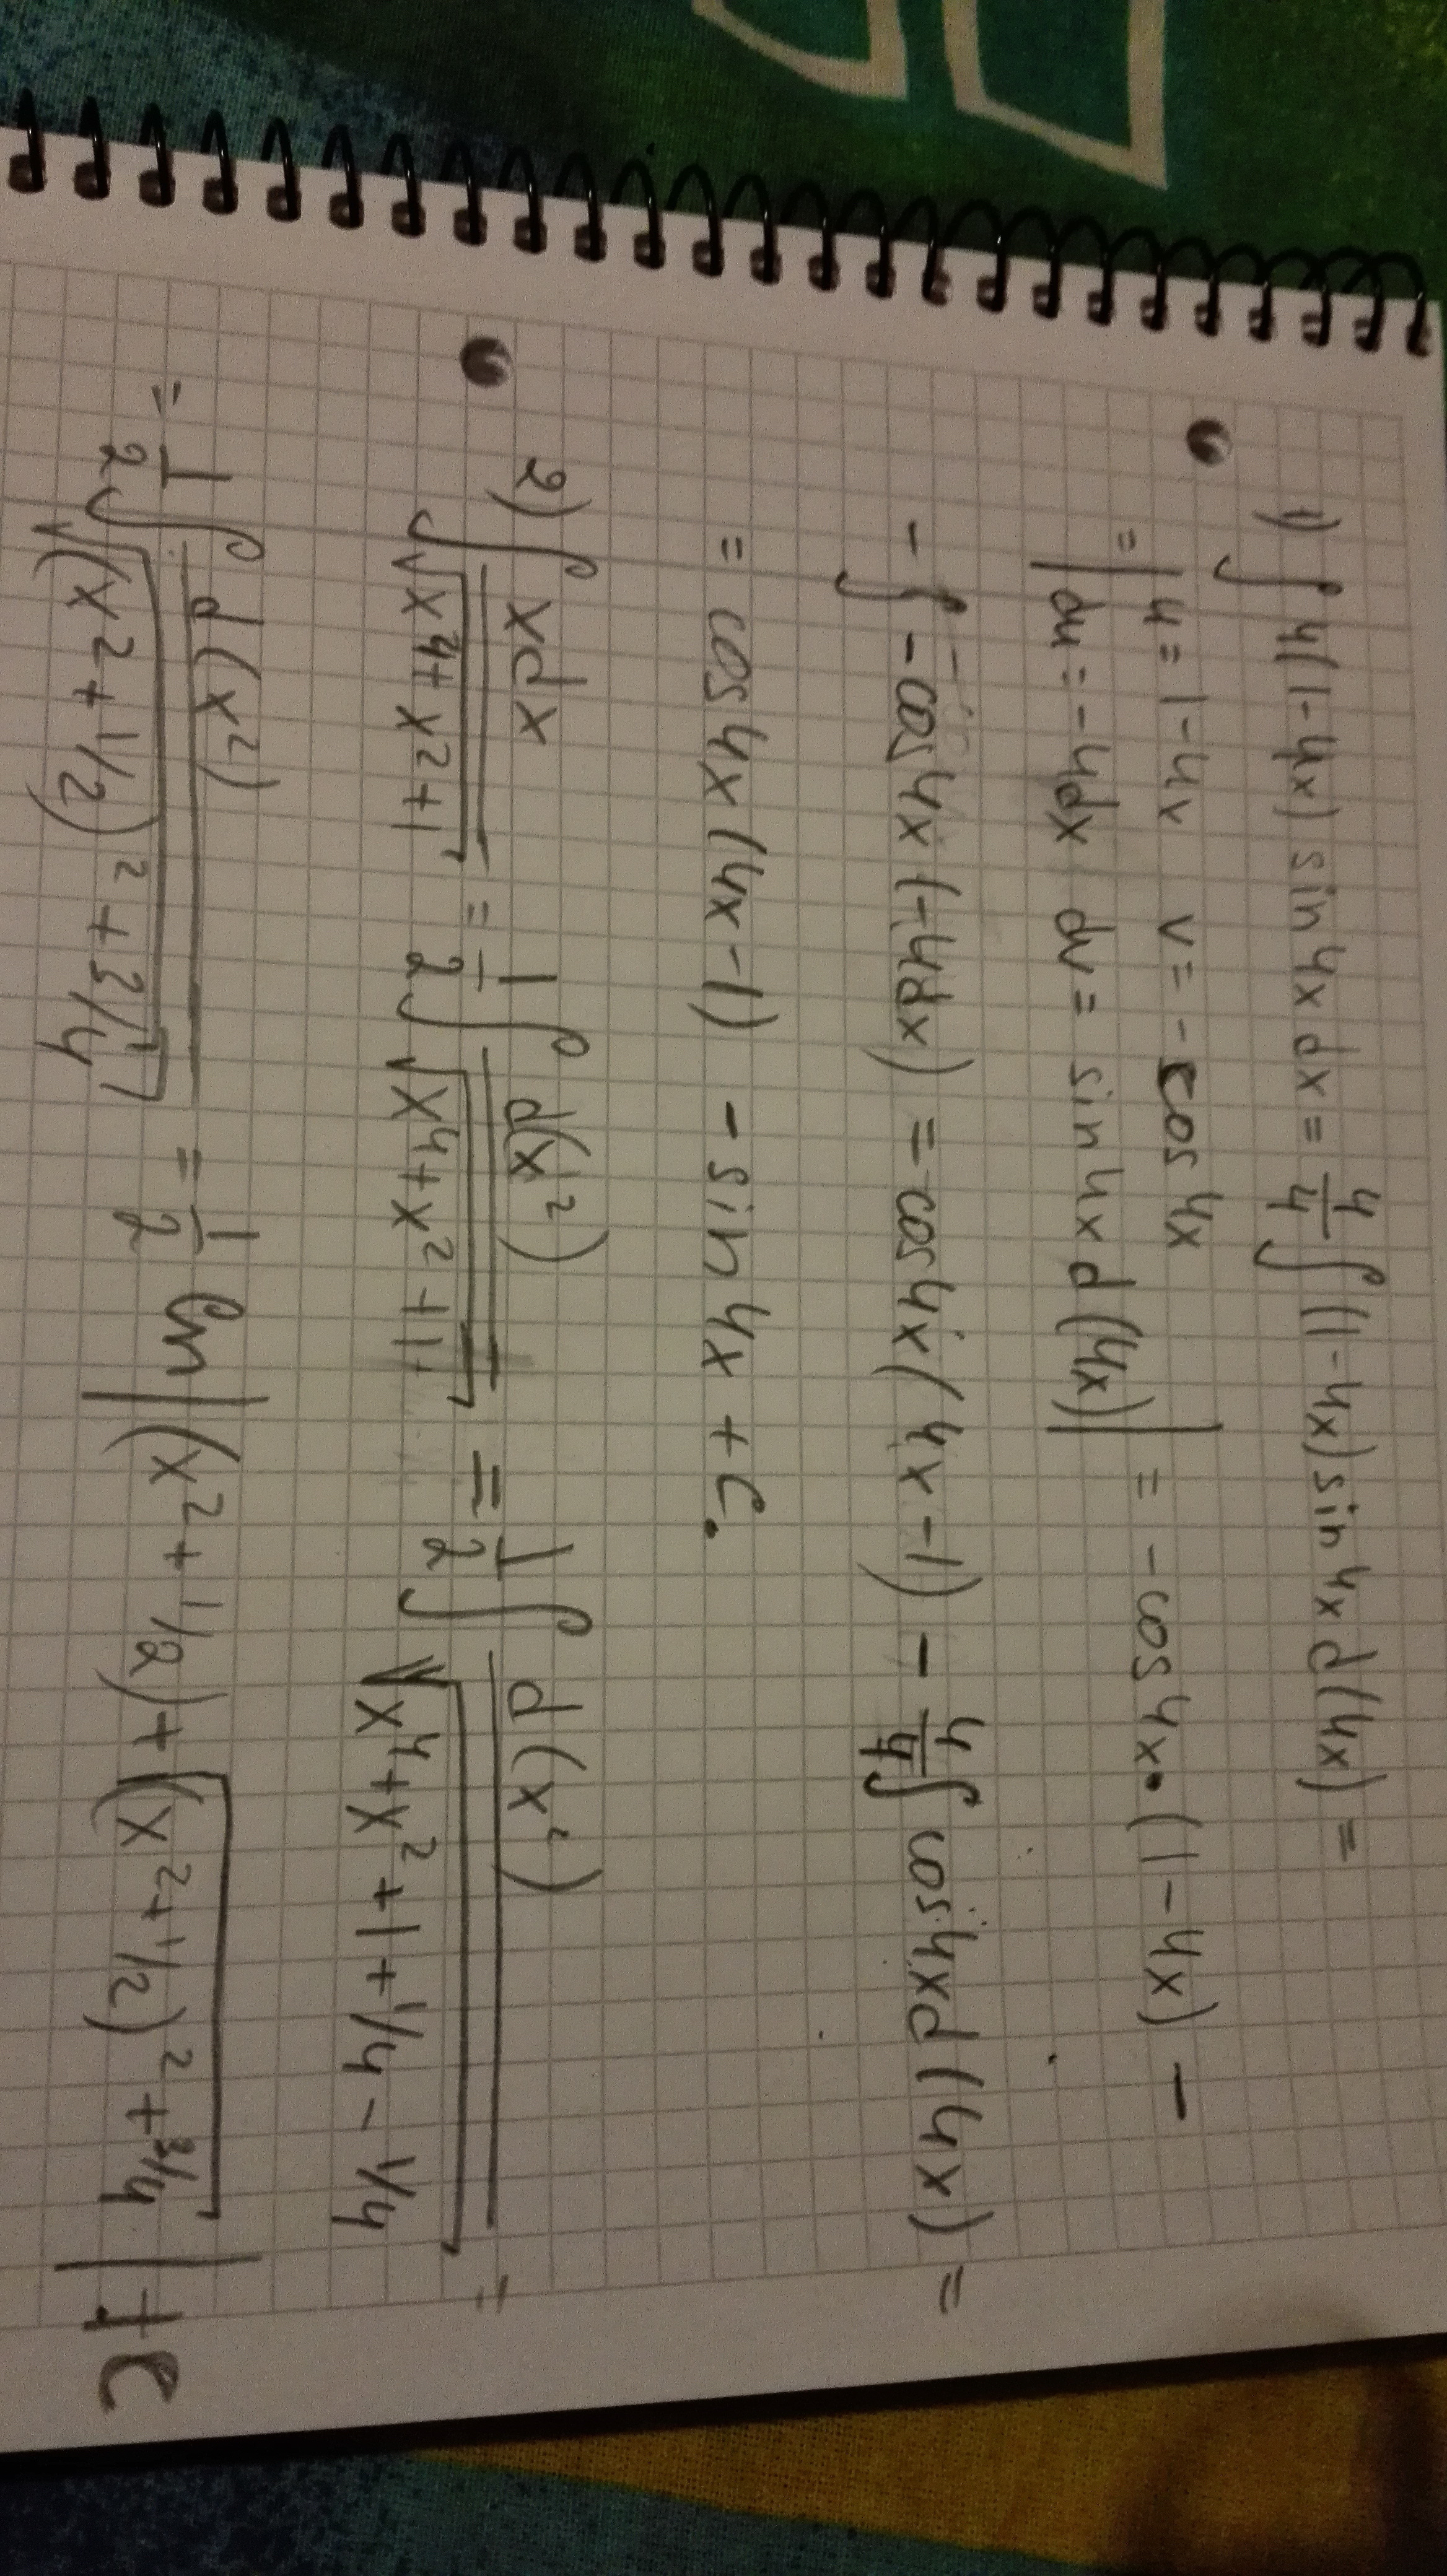 1) ∫ 4(1-4x) sin 4x dx = 4/4 ∫ (1-4x) sin 4x d(4x) =
= | u = 1-4x v = -cos 4x
| du = -4dx dv = sin 4x d(4x) | = -cos 4x • (1-4x) -
- ∫ -cos 4x (-4dx) = cos 4x (4x-1) - 4/4 ∫ cos 4x d(4x) =
= cos 4x (4x-1) - sin 4x + C.
2) ∫ xdx / √(x⁴+x²+1) = 1/2 ∫ d(x²) / √(x⁴+x²+1) = 1/2 ∫ d(x²) / √(x⁴+x²+1+1/4-1/4) =
= 1/2 ∫ d(x²) / √((x²+1/2)²+3/4) = 1/2 ln |(x²+1/2)+√((x²+1/2)²+3/4)| + C